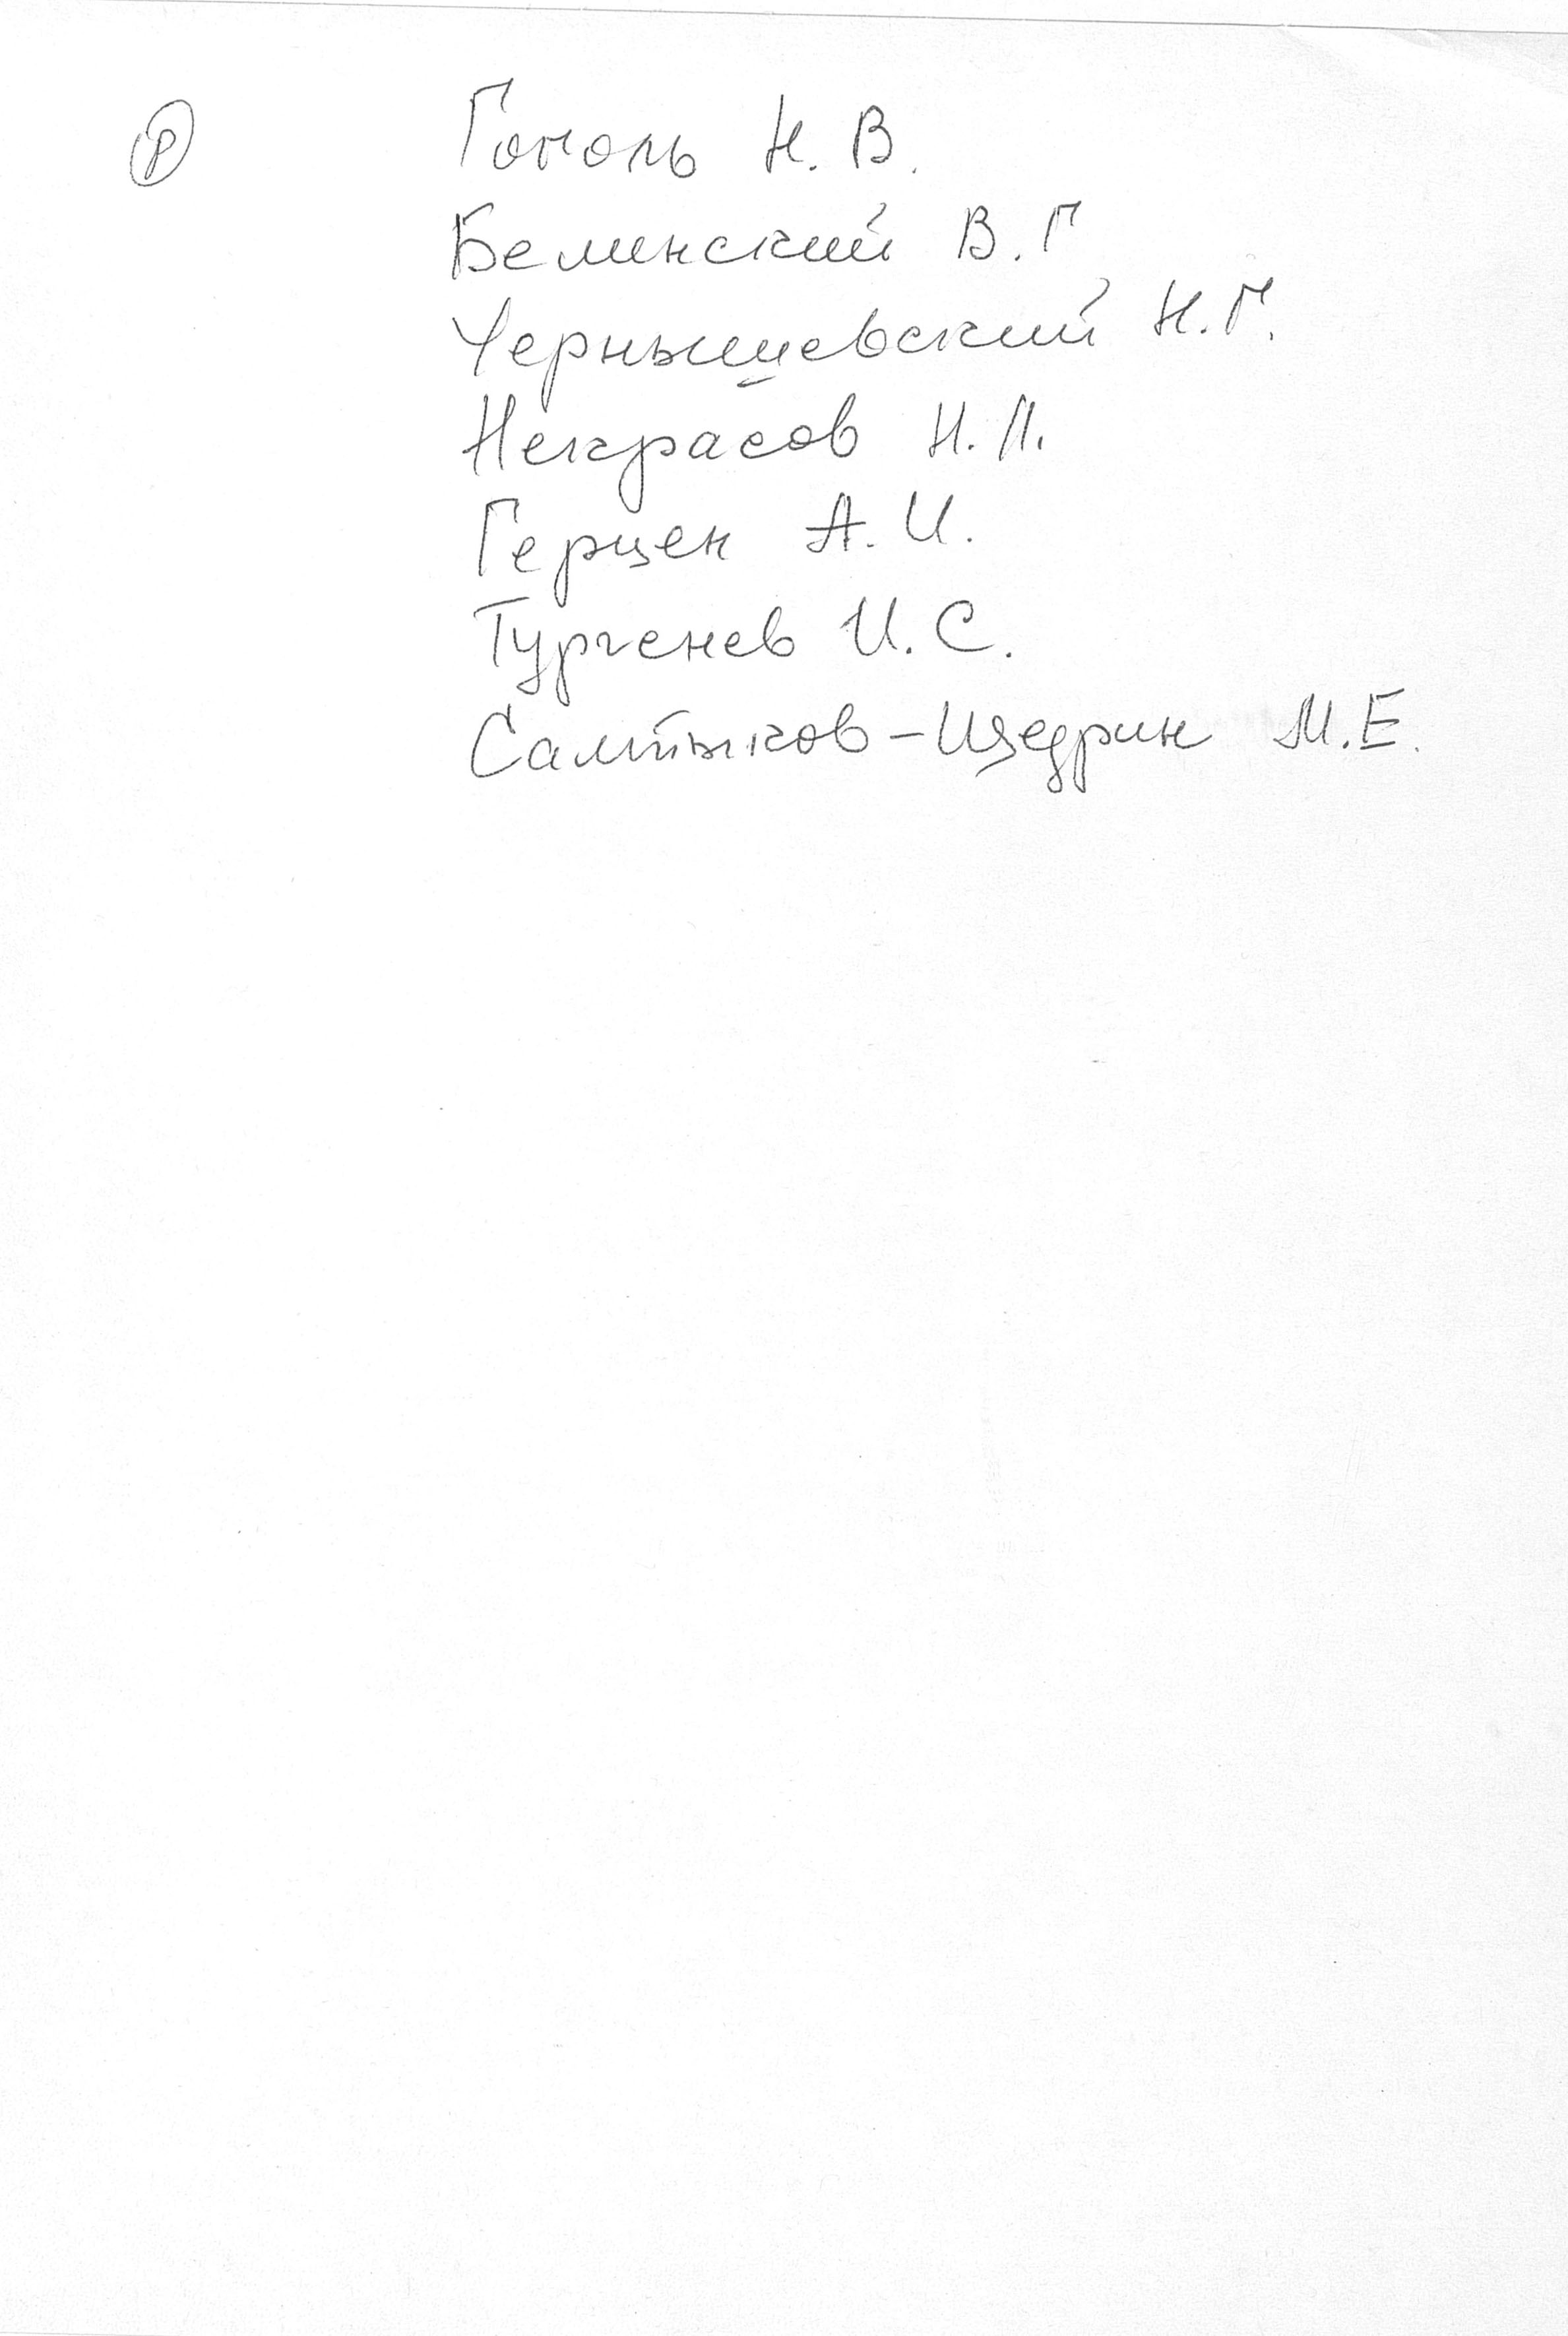 Р Гоголь Н. В.
Белинский В. Г
Чернышевский Н. Г.
Некрасов Н. А.
Герцен А. И.
Тургенев И. С.
Салтыков-Щедрин М. Е.